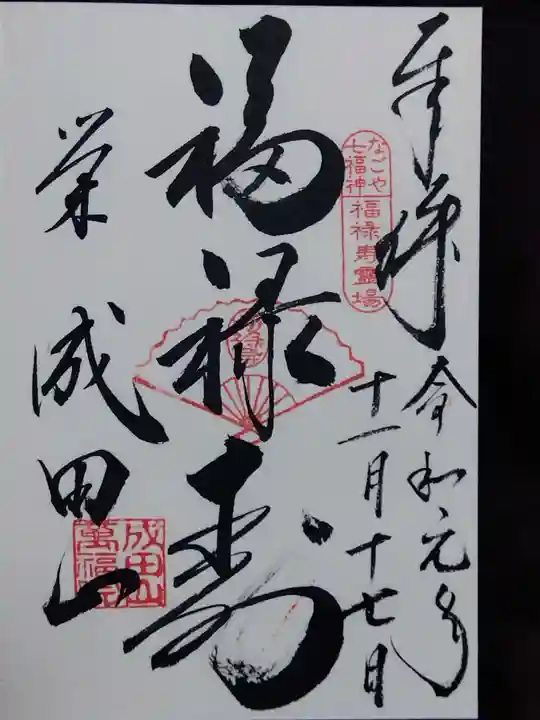 奉拝
令和元年
十一月十七日
なごや
七福神
福禄寿霊場
福禄寿
栄
成田山
成田山
萬福